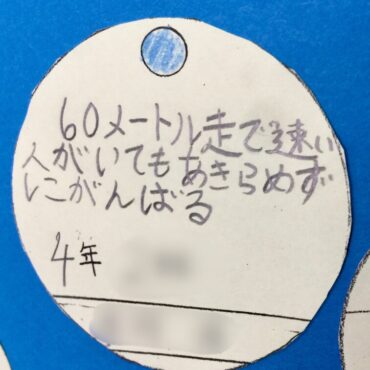 60メートル走で速い
人がいてもあきらめず
にがんばる
4年